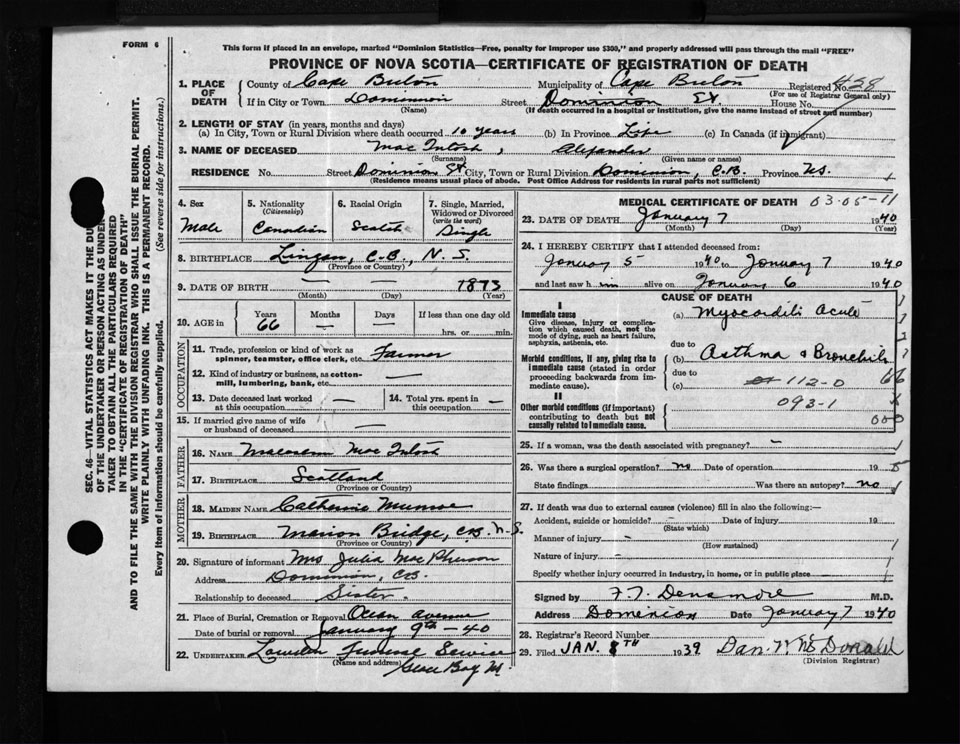 FORM 6
This form if placed in an envelope, marked "Dominion Statistics—Free, penalty for improper use $300," and properly addressed will pass through the mail "FREE"
PROVINCE OF NOVA SCOTIA—CERTIFICATE OF REGISTRATION OF DEATH
1. PLACE OF DEATH
County of Cape Breton Municipality of Cape Breton Registered No. 458
(For use of Registrar General only)
If in City or Town Dominion Street Dominion St. House No.
(Name) (If death occurred in a hospital or institution, give the name instead of street and number)
2. LENGTH OF STAY (in years, months and days)
(a) In City, Town or Rural Division where death occurred 10 years (b) In Province Life (c) In Canada (if immigrant)
3. NAME OF DECEASED Mac Intosh, Alexander
(Surname) (Given name or names)
RESIDENCE No. Street Dominion St City, Town or Rural Division Dominion, C.B. Province N.S.
(Residence means usual place of abode. Post Office Address for residents in rural parts not sufficient)
4. Sex
Male
5. Nationality (Citizenship)
Canadian
6. Racial Origin
Scotch
7. Single, Married, Widowed or Divorced (write the word)
Single
8. BIRTHPLACE Lingan, C.B., N.S.
(Province or Country)
9. DATE OF BIRTH — — 1873
(Month) (Day) (Year)
10. AGE in Years Months Days If less than one day old
66 — — hrs. or min.
OCCUPATION
11. Trade, profession or kind of work as spinner, teamster, office clerk, etc. Farmer
12. Kind of industry or business, as cotton-mill, lumbering, bank, etc. —
13. Date deceased last worked at this occupation —
14. Total yrs. spent in this occupation —
15. If married give name of wife or husband of deceased —
FATHER
16. NAME Mac Intosh
17. BIRTHPLACE Scotland
(Province or Country)
MOTHER
18. MAIDEN NAME Catherine Munroe
19. BIRTHPLACE Marion Bridge, C.B. N.S.
(Province or Country)
20. Signature of informant Mrs Julia Mac Pherson
Address Dominion, C.B.
Relationship to deceased Sister.
21. Place of Burial, Cremation or Removal Ocean avenue
Date of burial or removal January 9th - 40
22. UNDERTAKER Service
(Name and address) Glace Bay
MEDICAL CERTIFICATE OF DEATH 03.05-11
23. DATE OF DEATH January 7 1940
(Month) (Day) (Year)
24. I HEREBY CERTIFY that I attended deceased from:
January 5 1940 to January 7 1940
and last saw him alive on January 6 1940
CAUSE OF DEATH
I
Immediate cause (a) Myocarditis Acute
Give disease, injury or complication which caused death, not the mode of dying, such as heart failure, asphyxia, asthenia, etc.
due to
Morbid conditions, if any, giving rise to immediate cause (stated in order proceeding backwards from immediate cause).
(b) Asthma & Bronchitis
due to
(c) 112-0
II
Other morbid conditions (if important) contributing to death but not causally related to immediate cause.
093-1
25. If a woman, was the death associated with pregnancy? -
26. Was there a surgical operation? no Date of operation 19
State findings Was there an autopsy? no
27. If death was due to external causes (violence) fill in also the following:—
Accident, suicide or homicide? - Date of injury 19
(State which)
Manner of injury -
(How sustained)
Nature of injury -
Specify whether injury occurred in industry, in home, or in public place
Signed by F.T. Densmore M.D.
Address Dominion Date January 7 1940
28. Registrar's Record Number
29. Filed JAN. 8TH 1939 Dan. McDonald
(Division Registrar)
SEC. 46—VITAL STATISTICS ACT MAKES IT THE DUTY
OF THE UNDERTAKER OR PERSON ACTING AS UNDERTAKER
TO OBTAIN ALL THE PARTICULARS REQUIRED
IN THE "CERTIFICATE OF REGISTRATION OF DEATH"
AND TO FILE THE SAME WITH THE DIVISION REGISTRAR WHO SHALL ISSUE THE BURIAL PERMIT.
WRITE PLAINLY WITH UNFADING INK. THIS IS A PERMANENT RECORD.
Every item of information should be carefully supplied. (See reverse side for instructions.)